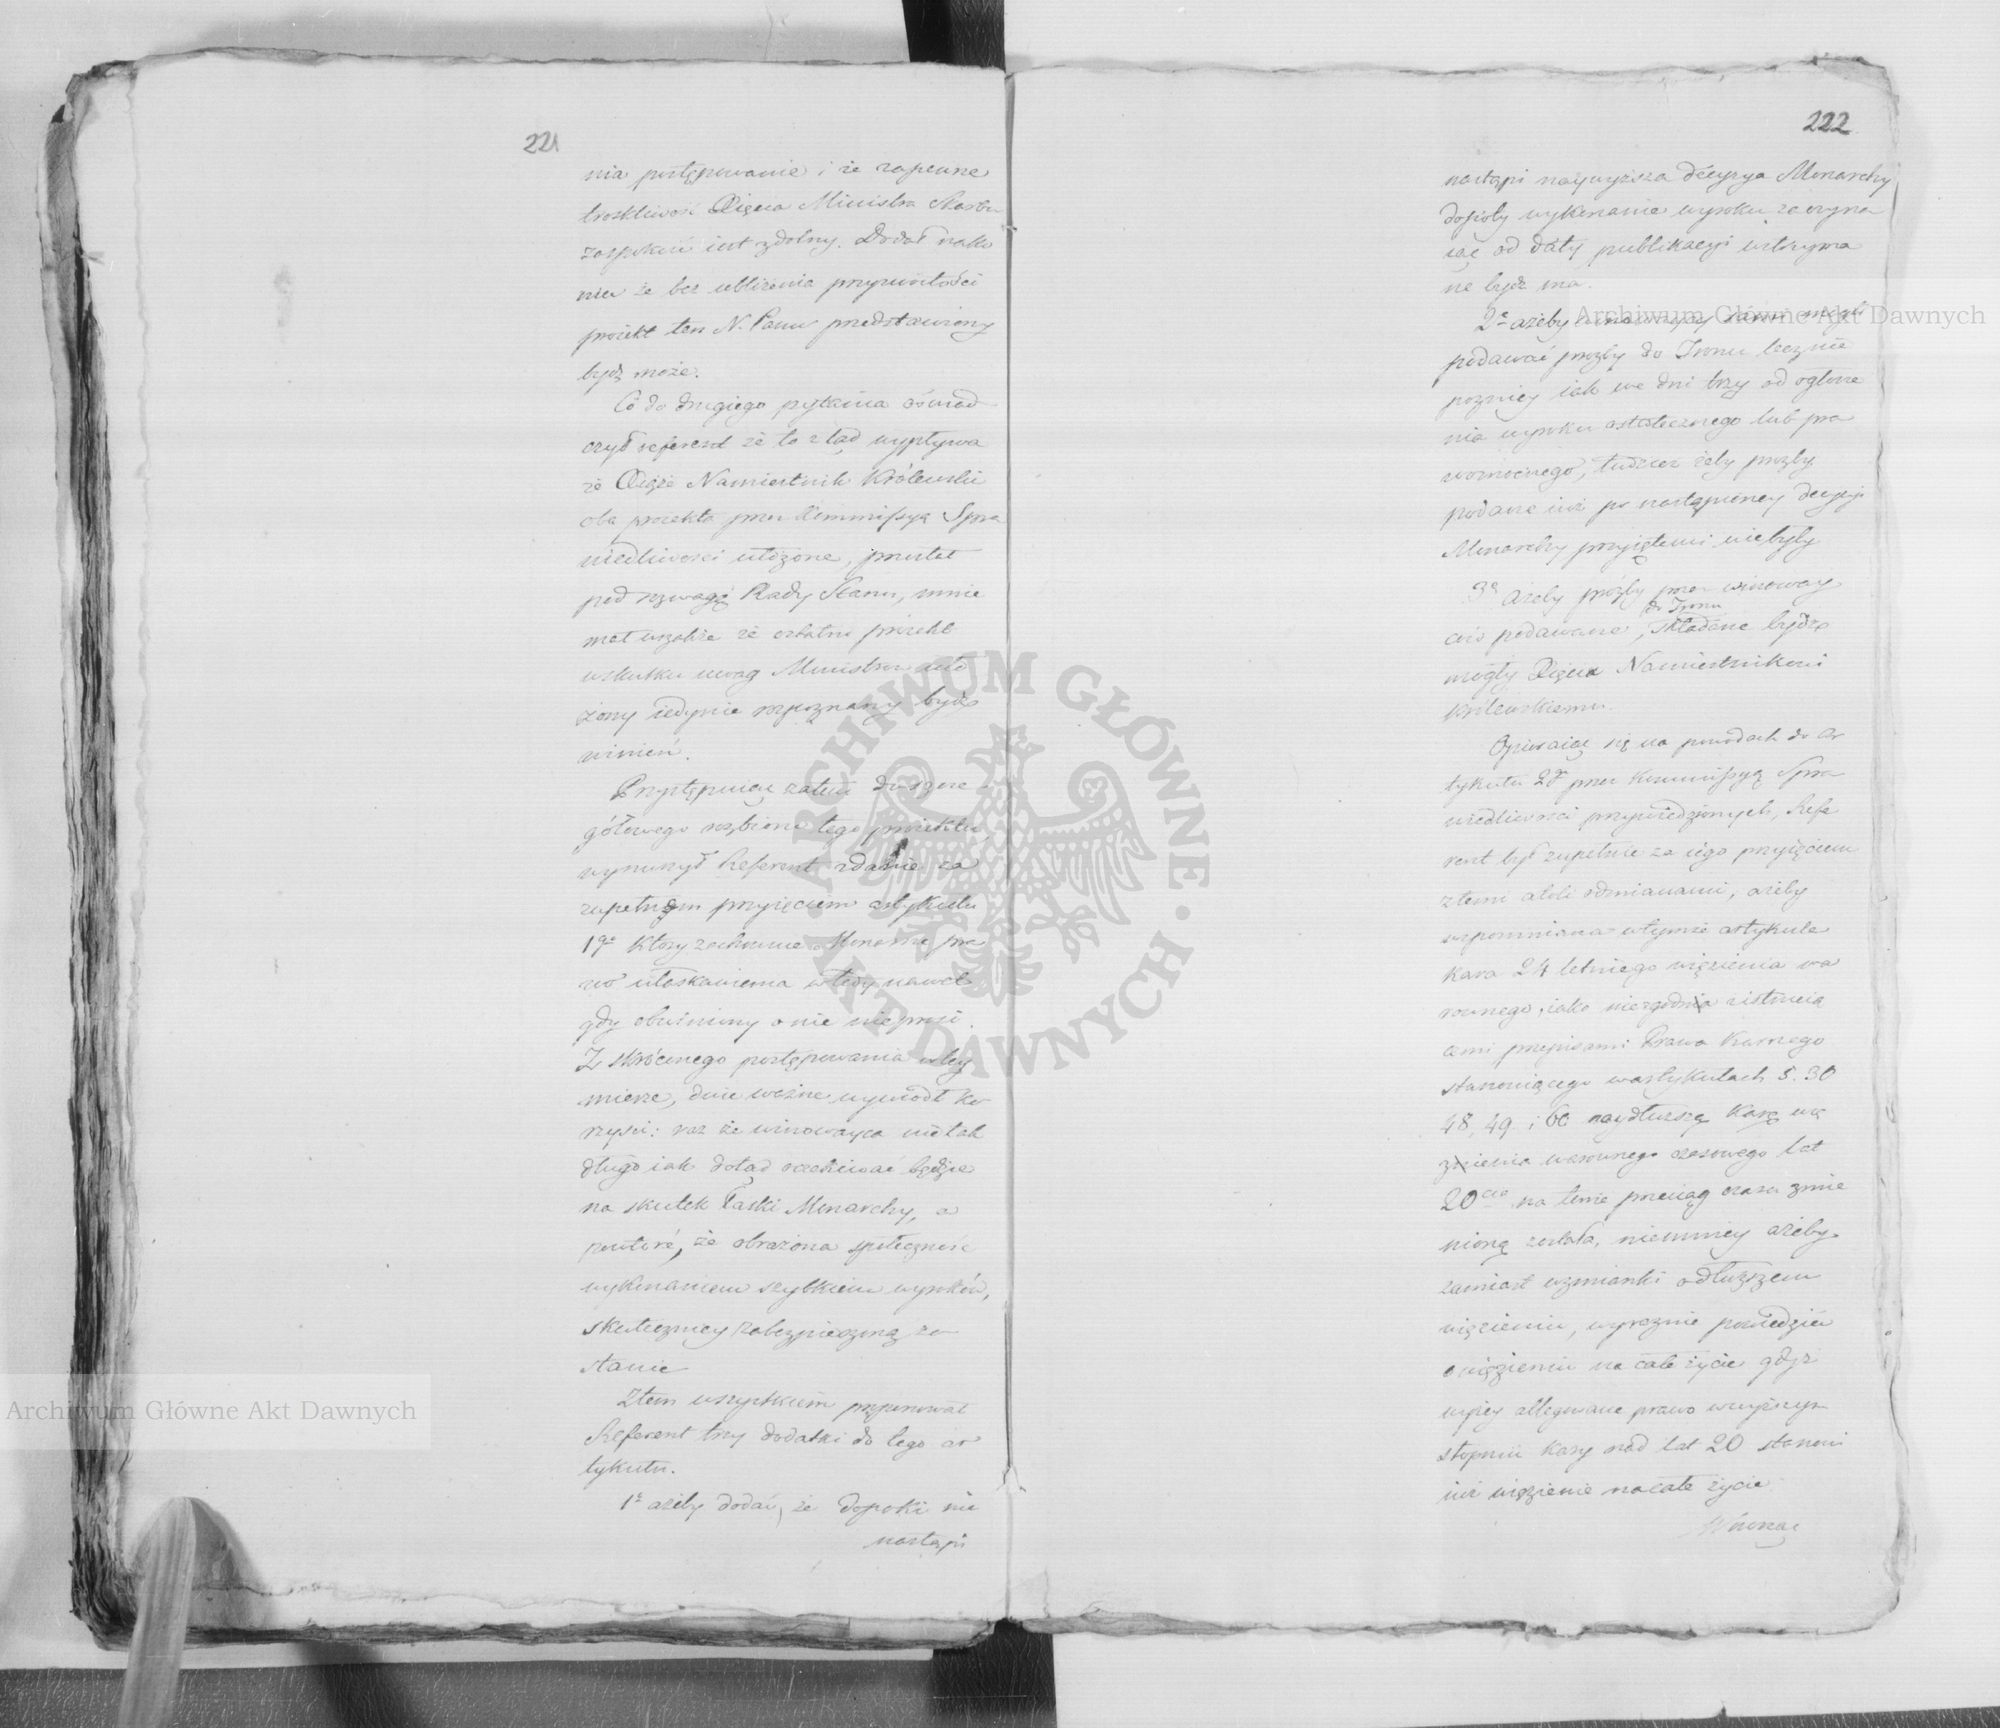 221
nia postępowanie i że zapewne
troskliwość Xięcia Ministra Skarbu
zaspokoić iest zdolny. Dodał nako
niec że bez ubliżenia przyzwoitości
proiekt ten N. Panu przedstawiony
bydź może.
Co do drugiego pytania oświad
czył referent że to ztąd wypływa
że Xiąże Namiestnik Królewski
oba proiekta przez Kommissyą Spra
wiedliwości ułożone, przesłał
pod rozwagę Rady Stanu, mnie
mał wszakże że ostatni proiekt
wskutku uwag Ministrów uło
żony iedynie rozpoznany bydź
winien.
Przystępuiąc zatem do szcze
gółowego rozbioru tego proiektu,
wynurzył Referent zdanie za
zupełnem przyięciem artykułu
19o który zachowuie Monarsze pra
wo ułaskawienia wtedy nawet
gdy obwiniony o nie nie prosi.
Ze skróconego postępowania w tey
mierze, dwie ważne wywiódł ko
rzyści: raz że winowayca nie tak
długo iak dotąd oczekiwać będzie
na skutek Łaski Monarchy, a
powtóre, że obrażona społeczność
wykonaniem szybkiem wyroków,
skuteczniey zabezpieczoną zo
stanie
Ztem wszystkiem proponował
Referent trzy dodatki do tego ar
tykułu.
1e ażeby dodać, że dopoki nie
nastąpi
222
nastąpi naywyższa decyzya Monarchy
dopioty wykonanie wyroku zaczyna
iąc od daty publikacyi wstrzyma
ne bydź ma.
2e ażeby winowaycy sami mogli
podawać prozby do Tronu lecz nie
pozniey iak we dni trzy od ogłosze
nia wyroku ostatecznego lub pra
womocnego, tudzież żeby prozby
podane iuż po nastąpioney decyzyi
Monarchy przyiętemi niebyły
3e Ażeby prózby przez winoway
do Tronu
ców podawane, składane bydź
mogły Xięciu Namiestnikowi
Królewskiemu.
Opieraiąc się na powodach do Ar
tykułu 2go przez Kommissyą Spra
wiedliwości przywiedzionych, Refe
rent był zupełnie za iego przyięciem
z temi atoli odmianami, ażeby
wspomniana w tymże artykule
kara 24 letniego więzienia wa
rownego, iako niezgodna z istnieią
cemi przepisami Prawa Karnego
stanowiącego w artykułach 5. 30
48, 49 i 60 naydłuższą karę wię
zienia warownego czasowego lat
20cia na tenże przeciąg czasu zmie
nioną została, niemniey ażeby
zamiast wzmianki o dłuższem
więzieniu, wyraznie powiedzieć
o więzieniu na całe życie gdyż
wyżey allegowane prawo w wyższym
stopniu kary nad lat 20 stanowi
iuż więzienie na całe życie.
Wnosząc
Archiwum Główne Akt Dawnych
Archiwum Główne Akt Dawnych
ARCHIWUM GŁÓWNE · AKT DAWNYCH ·